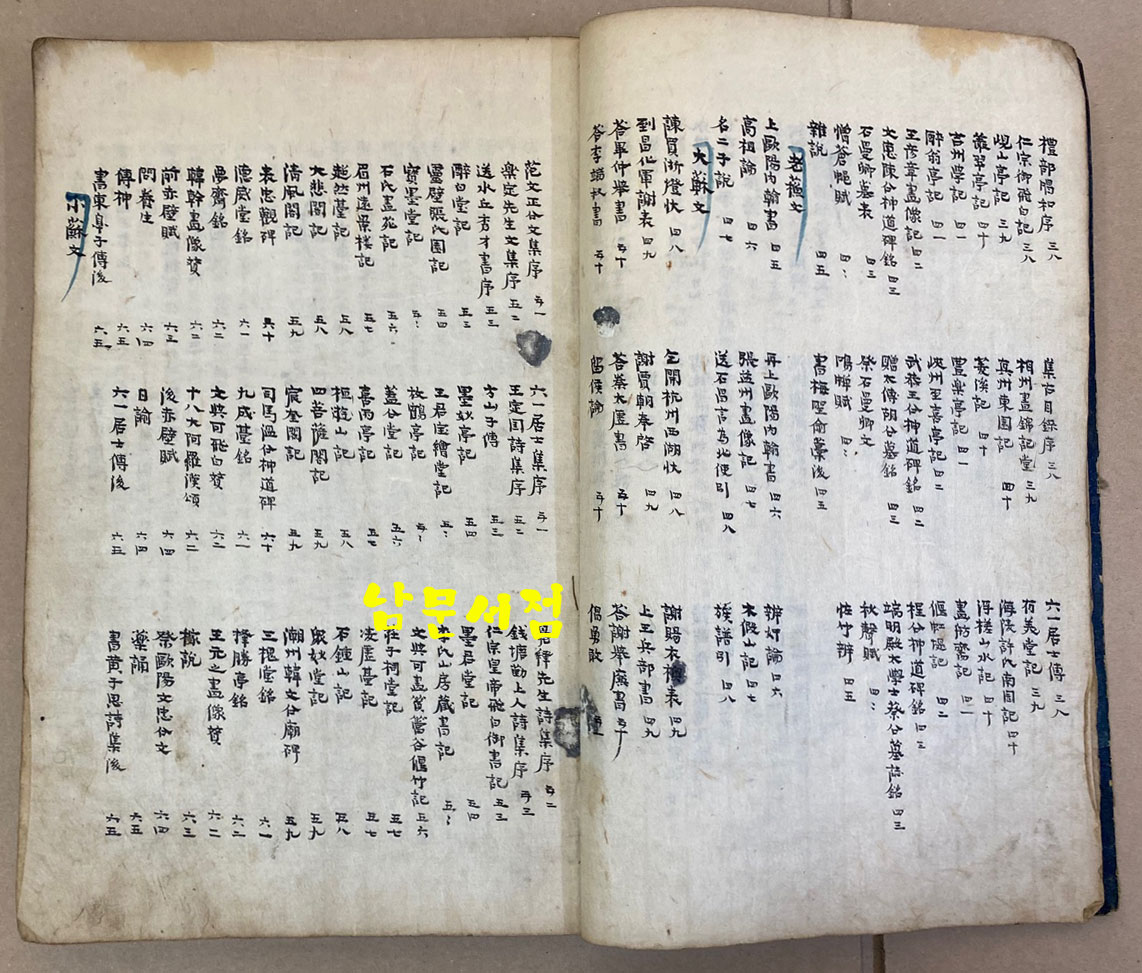 禮部唱和序 三八 集古目錄序 三八 六一居士傳 三八
仁宗御飛白記 三八 相州晝錦記堂 三九 有美堂記 三九
峴山亭記 三九 真州東園記 四十 海陵許氏南園記 四十
叢翠亭記 四十 菱溪記 四十 浮槎山水記 四十
吉州學記 四一 豐樂亭記 四一 畫舫齋記 四一
醉翁亭記 四一 峽州至喜亭記 四二 偃虹隄記 四二
王彥章畫像記 四二 武恭王公神道碑銘 四二 程公神道碑銘 四三
公神道碑銘 四三 贈太傅胡公墓銘 四三 端明殿大學士蔡公墓誌銘 四三
石曼卿墓表 四三 祭石曼卿文 秋聲賦
憎蒼蠅賦 鳴蟬賦 怪竹辨 四五
雜說 四五 書梅聖俞藁後 四五
老蘇文
上歐陽內翰書 四五 再上歐陽內翰書 四六 辨奸論 四六
高祖論 四六 張益州畫像記 四七 木假山記 四七
名二子說 四七 送石昌言爲北使引 四八 族譜引 四八
大蘇文
諫買浙燈狀 四八 乞開杭州西湖狀 四八 謝賜衣襖表 四九
到昌化軍謝表 四九 謝賈朝奉啓 四九 上王兵部書 四九
答畢仲擧書 五十 答秦太虛書 五十 答謝擧廉書 五十
答李端叔書 五十 留侯論 五十 倡勇敢
范文正公文集序 五一 六一居士集序 五一 先生詩集序 五二
樂全先生文集序 五二 王定國詩集序 五二 錢塘勤上人詩集序 五三
送水丘秀才書序 五三 方山子傳 五三 仁宗皇帝飛白御書記 五三
醉白堂記 五三 墨妙亭記 五四 墨君堂記 五四
靈壁張氏園記 五四 王君寶繪堂記 李氏山房藏書記
寶墨堂記 放鶴亭記 文與可畫篔簹谷偃竹記 五六
石氏畫苑記 五六 蓋公堂記 五六 莊子祠堂記 五七
眉州遠景樓記 五七 喜雨亭記 五七 凌虛臺記 五七
超然臺記 五八 石鐘山記 五八
大悲閣記 五八 四菩薩閣記 五九 衆妙堂記 五九
淸風閣記 五九 宸奎閣記 五九 潮州韓文公廟碑 五九
表忠觀碑 六十 司馬溫公神道碑 六十 三槐堂銘 六一
德威堂銘 六一 九成臺銘 六一 擇勝亭銘 六二
夢齋銘 六二 文與可飛白贊 六二 王元之畫像贊 六二
韓幹畫像贊 六二 十八大阿羅漢頌 六二 說 六三
前赤壁賦 六三 後赤壁賦 六四 祭歐陽文忠公文 六四
問養生 六四 日喩 六四 藥誦 六五
傳神 六五 六一居士傳後 六五 書黃子思詩集後 六五
書東皐子傳後 六五
小蘇文
남문서점